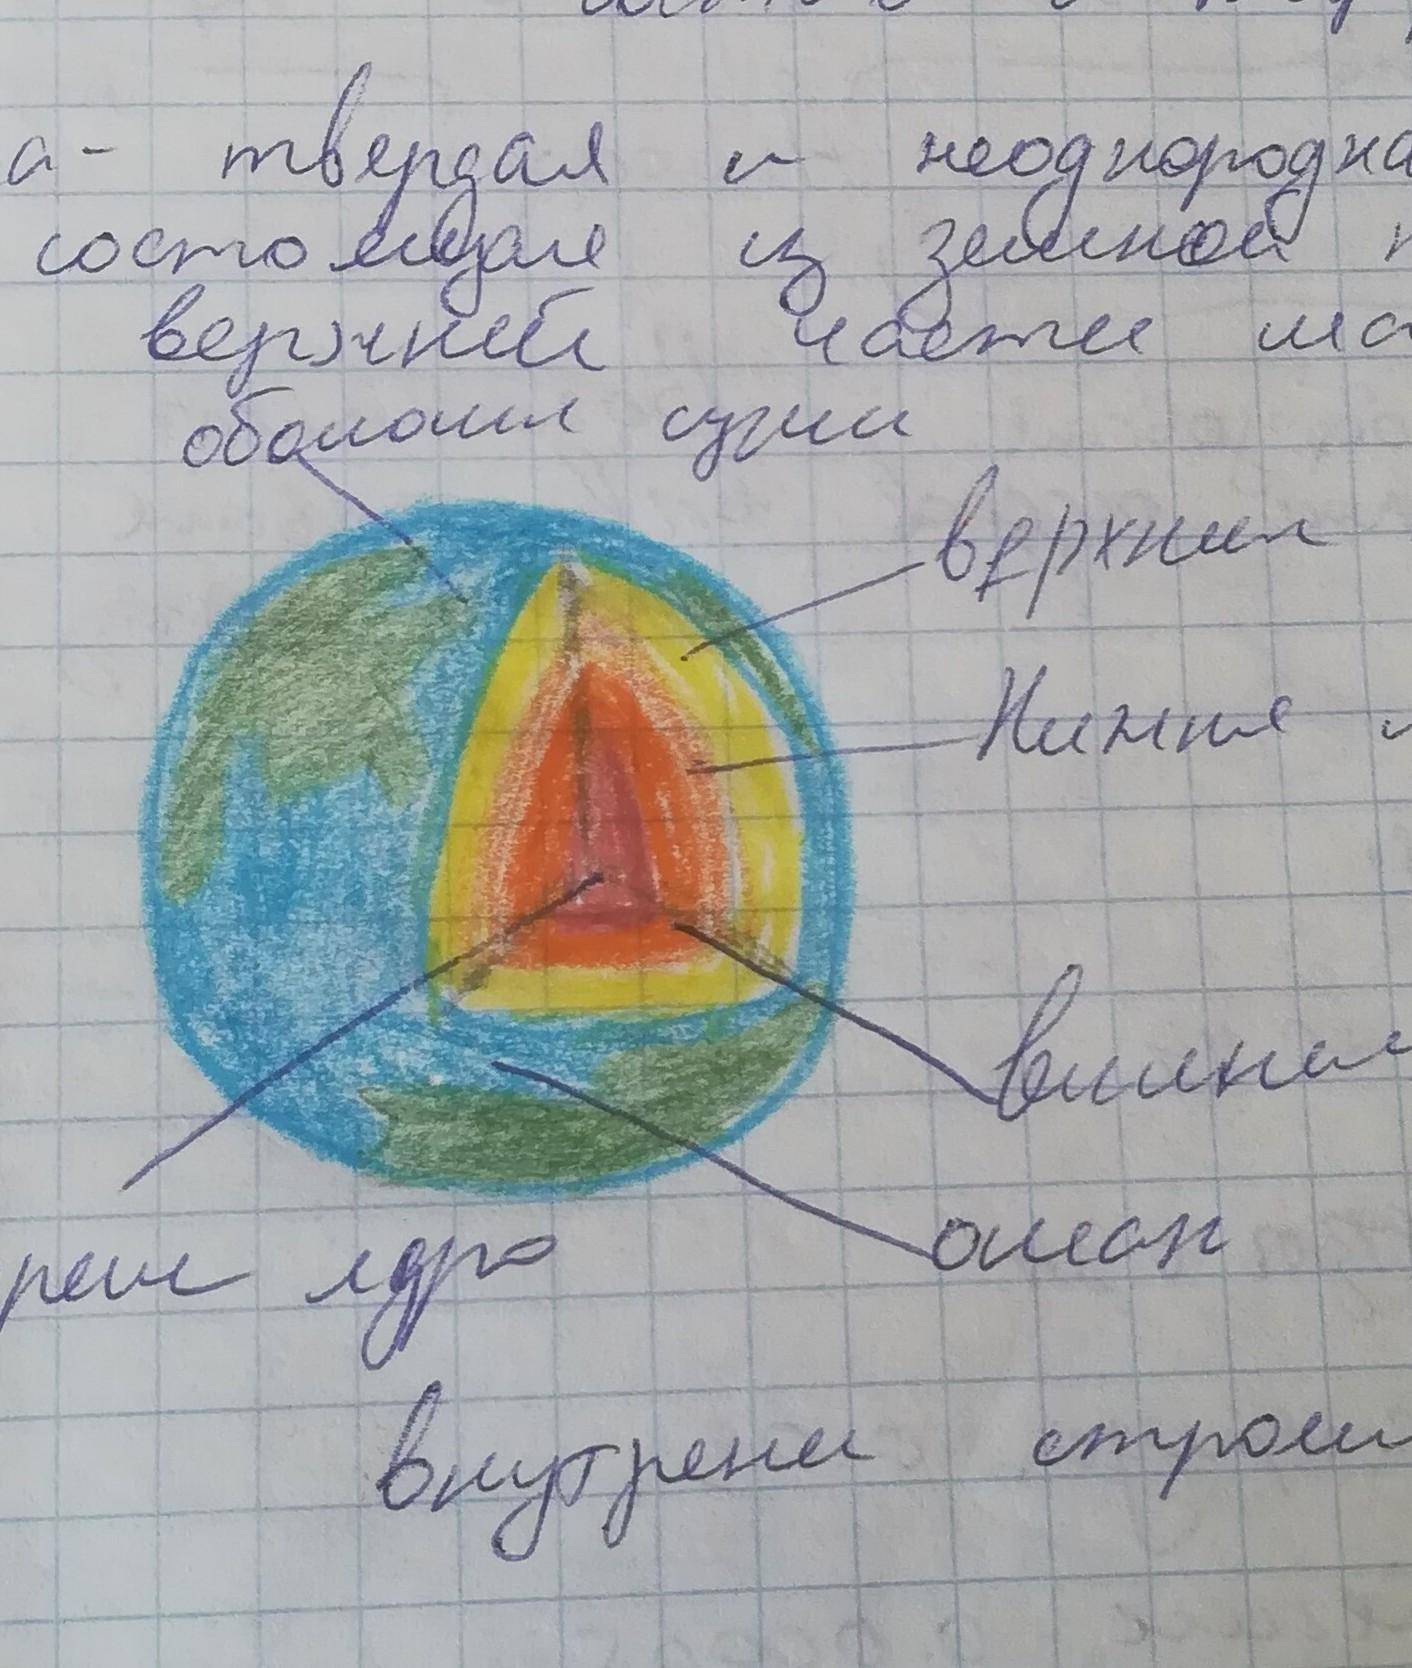 а- твердая и неоднородна
состоящая из земной
верхней части ма
оболочка суши
верхния
Нижния
внешня
океан
рене ядро
внутрени строен